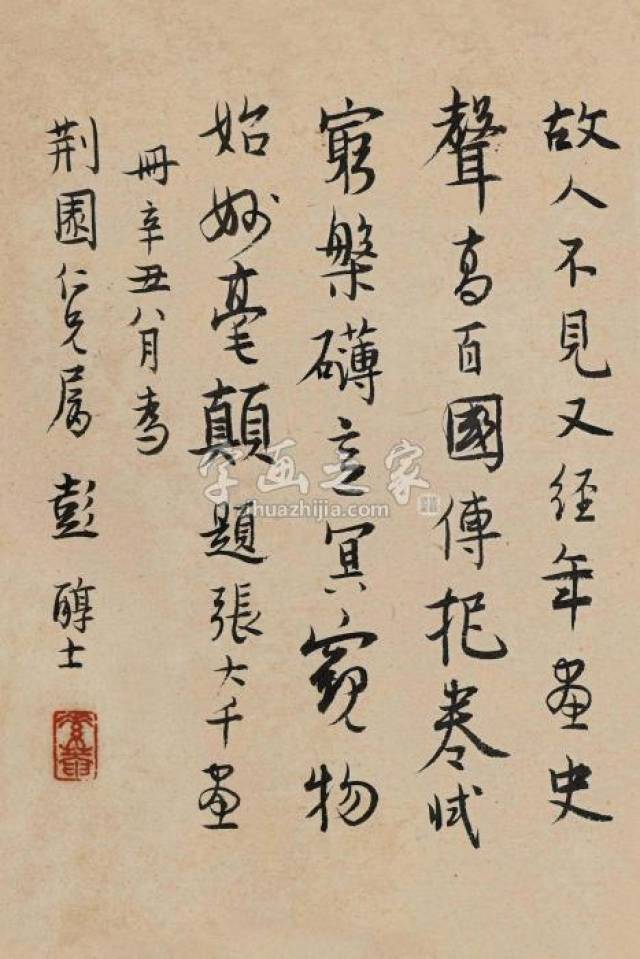 故人不見又經年畫史
聲高百國傳把卷賦
窮槃礴意冥窺物
始妙毫顛題張大千畫
冊辛丑八月為
荊園仁兄屬 彭醇士
字画之家
zihuazhijia.com